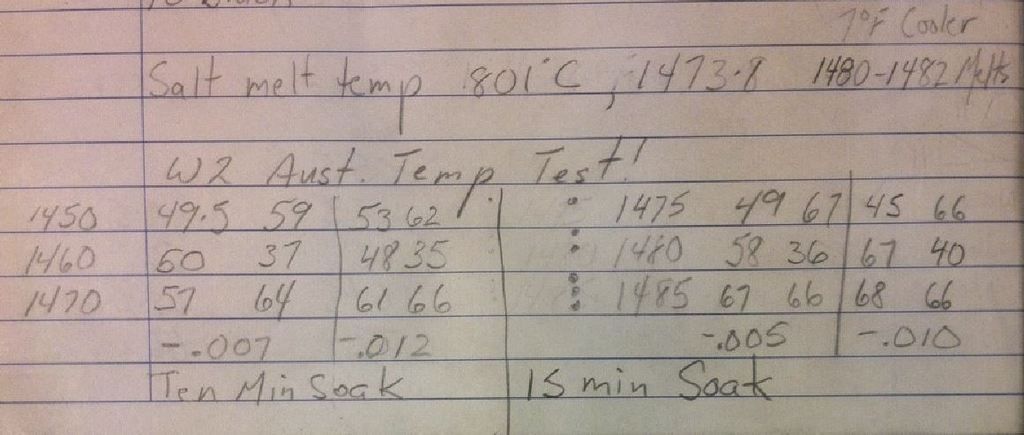 7°F Cooler
Salt melt temp 801°C, 1473.8 1480-1482 Melts
W2 Aust. Temp. Test!
1450 49.5 59 53 62 1475 49 67 45 66
1460 50 37 48 35 1480 58 36 67 40
1470 57 64 61 66 1485 67 66 68 66
-.007 -.012 -.005 -.010
Ten Min Soak 15 min Soak